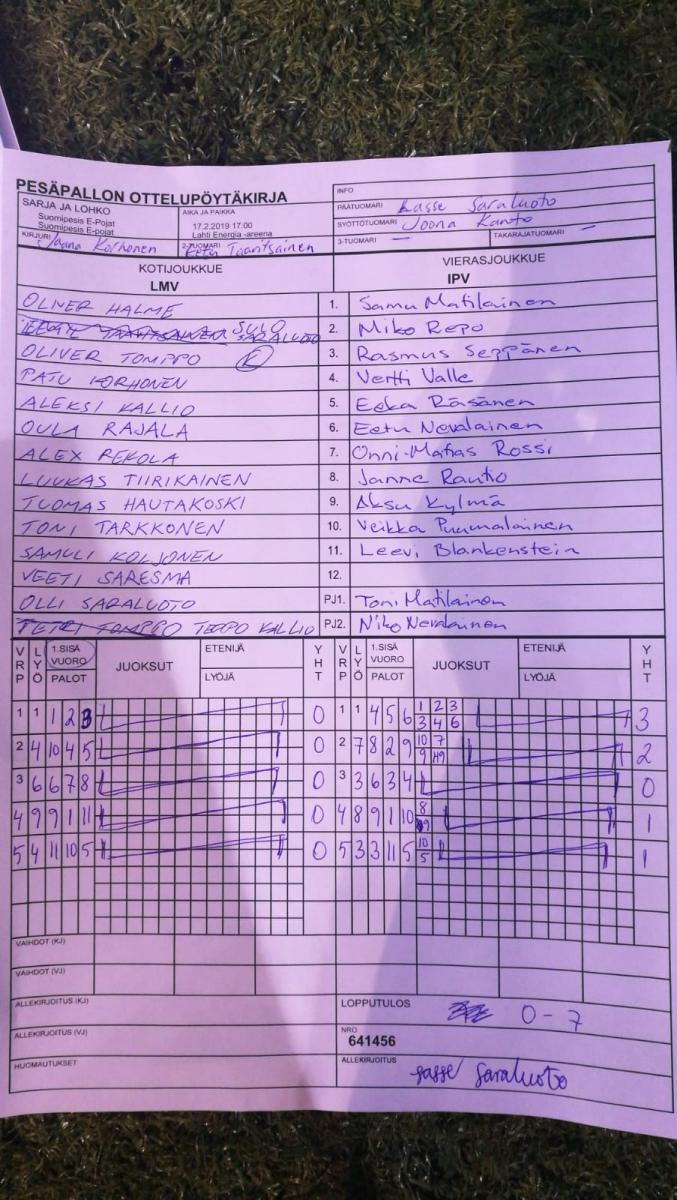 PESÄPALLON OTTELUPÖYTÄKIRJA
INFO
SARJA JA LOHKO
Suomipesis E-Pojat
Suomipesis E-pojat
AIKA JA PAIKKA
17.2.2019 17.00
Lahti Energia -areena
PÄÄTUOMARI Lasse Saraluoto
SYÖTTÖTUOMARI Joona Kanto
KIRJURI Jaana Korhonen
2-TUOMARI Eetu Taanitsainen
3-TUOMARI —
TAKARAJATUOMARI —
KOTIJOUKKUE
LMV
VIERASJOUKKUE
IPV
OLIVER HALME 1. Samu Matilainen
SULO SARALUOTO 2. Miko Repo
OLIVER TOMPPO 3. Rasmus Seppänen
PATU KORHONEN 4. Vertti Valle
ALEKSI KALLIO 5. Eeka Räsänen
OULA RAJALA 6. Eetu Nevalainen
ALEX REKOLA 7. Onni-Matias Rossi
LUUKAS TIIRIKAINEN 8. Janne Rautio
TUOMAS HAUTAKOSKI 9. Aksu Kylmä
TONI TARKKONEN 10. Veikka Puumalainen
SAMULI KOLJONEN 11. Leevi Blankenstein
VEETI SARESMA 12.
OLLI SARALUOTO PJ1. Toni Matilainen
PETRI TOMPPO TEPPO KALLIO PJ2. Niko Nevalainen
VRP LYÖ 1.SISÄ VUORO PALOT JUOKSUT ETENIJÄ LYÖJÄ YHT VRP LYÖ 1.SISÄ VUORO PALOT JUOKSUT ETENIJÄ LYÖJÄ YHT
1 1 1 2 3 0 1 1 4 5 6 1 2 3 3
3 4 6
2 4 10 4 5 0 2 7 8 2 9 10 7 2
9
3 6 6 7 8 0 3 3 6 3 4 0
4 9 9 1 11 0 4 8 9 1 10 8 1
9
5 4 11 10 5 0 5 3 3 11 5 10 1
5
VAIHDOT (KJ)
VAIHDOT (VJ)
ALLEKIRJOITUS (KJ)
LOPPUTULOS 0-7
ALLEKIRJOITUS (VJ)
NRO
641456
HUOMAUTUKSET
ALLEKIRJOITUS
Lasse Saraluoto